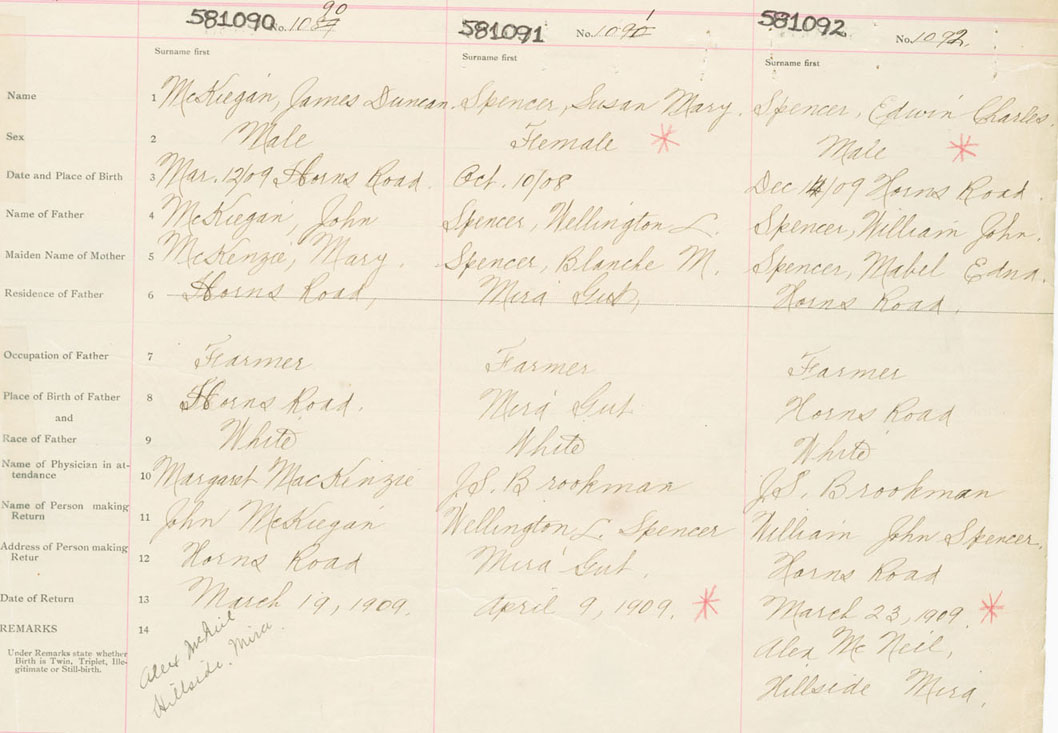 581090 No. 1089 90
581091 No. 1091
581092 No. 1092
Surname first Surname first Surname first
Name 1 McKiegan, James Duncan. Spencer, Susan Mary. Spencer, Edwin Charles.
Sex 2 Male Female Male
Date and Place of Birth 3 Mar. 12/09 Horns Road. Oct. 10/08 Dec 14/09 Horns Road.
Name of Father 4 McKiegan, John Spencer, Wellington L. Spencer, William John.
Maiden Name of Mother 5 McKenzie, Mary. Spencer, Blanche M. Spencer, Mabel Edna.
Residence of Father 6 Horns Road, Mira Gut, Horns Road.
Occupation of Father 7 Farmer Farmer Farmer
Place of Birth of Father 8 Horns Road. Mira Gut Horns Road
and
Race of Father 9 White White White
Name of Physician in at-
tendance 10 Margaret MacKinzie J.S. Brookman J.S. Brookman
Name of Person making
Return 11 John McKiegan Wellington L. Spencer William John Spencer.
Address of Person making
Retur 12 Horns Road Mira Gut. Horns Road
Date of Return 13 March 19, 1909. April 9, 1909. March 23, 1909.
REMARKS 14 Alex McNeil Alex McNeil,
Hillside. Mira. Hillside Mira.
Under Remarks state whether
Birth is Twin, Triplet, Ille-
gitimate or Still-birth.